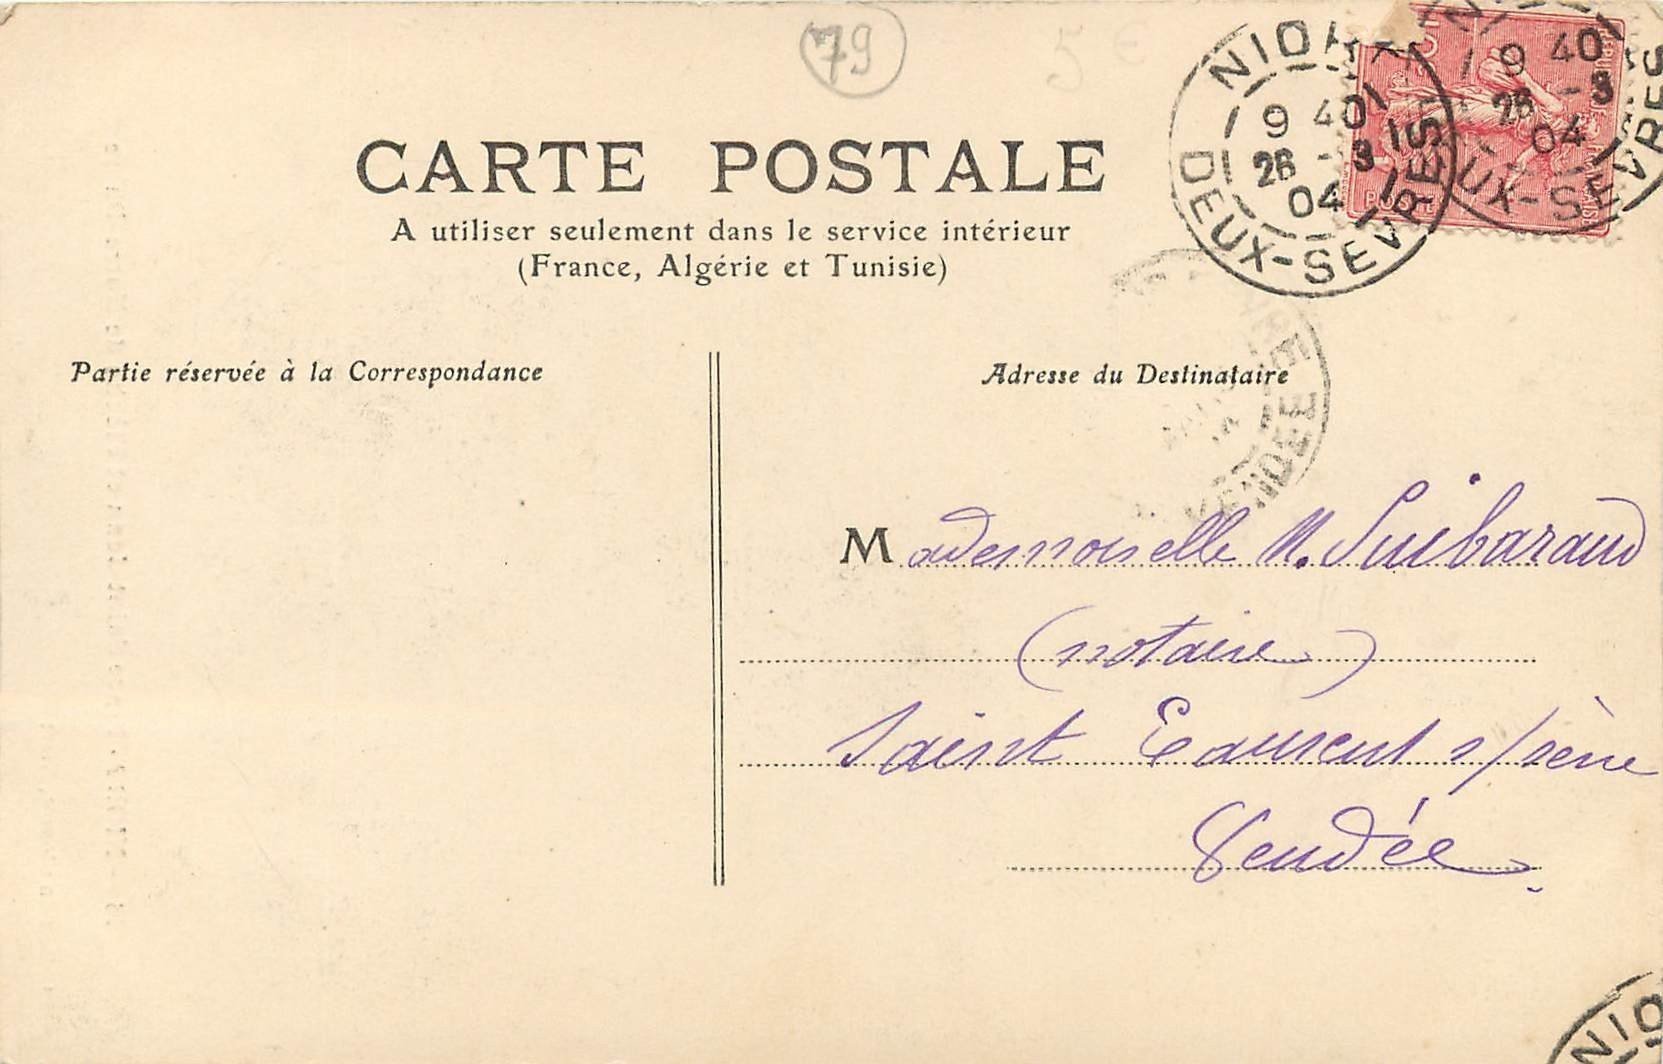 79
5 €
NIORT
9 40
26 - 3
04
DEUX-SEVRES
9 40
26 - 3
04
UX-SEVRES
POSTES
CARTE POSTALE
A utiliser seulement dans le service intérieur
(France, Algérie et Tunisie)
VENDÉE
Partie réservée à la Correspondance
Adresse du Destinataire
Mademoiselle M. Suibaraud
(notaire)
Saint Laurent s/sèvre
Vendée
NIO